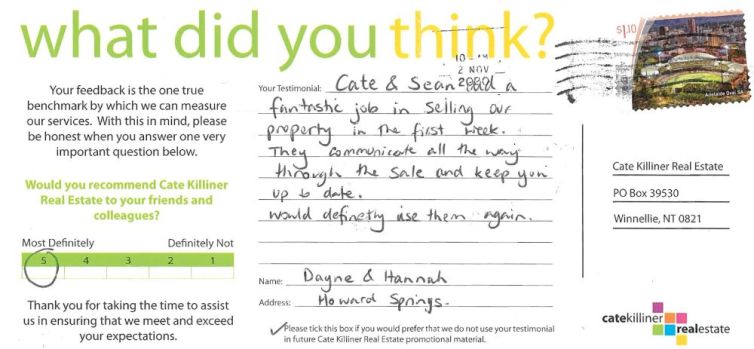 what did you think?
Your feedback is the one true
benchmark by which we can measure
our services. With this in mind, please
be honest when you answer one very
important question below.
Would you recommend Cate Killiner
Real Estate to your friends and
colleagues?
Most Definitely Definitely Not
5 4 3 2 1
Thank you for taking the time to assist
us in ensuring that we meet and exceed
your expectations.
Your Testimonial: Cate & Sean did a
fantastic job in selling our
property in the first week.
They communicate all the way
through the sale and keep you
up to date.
would definetly use them again.
Name: Dayne & Hannah
Address: Howard Springs.
Please tick this box if you would prefer that we do not use your testimonial
in future Cate Killiner Real Estate promotional material.
2 NOV
$1.10
Adelaide Oval, SA
Cate Killiner Real Estate
PO Box 39530
Winnellie, NT 0821
catekilliner
realestate